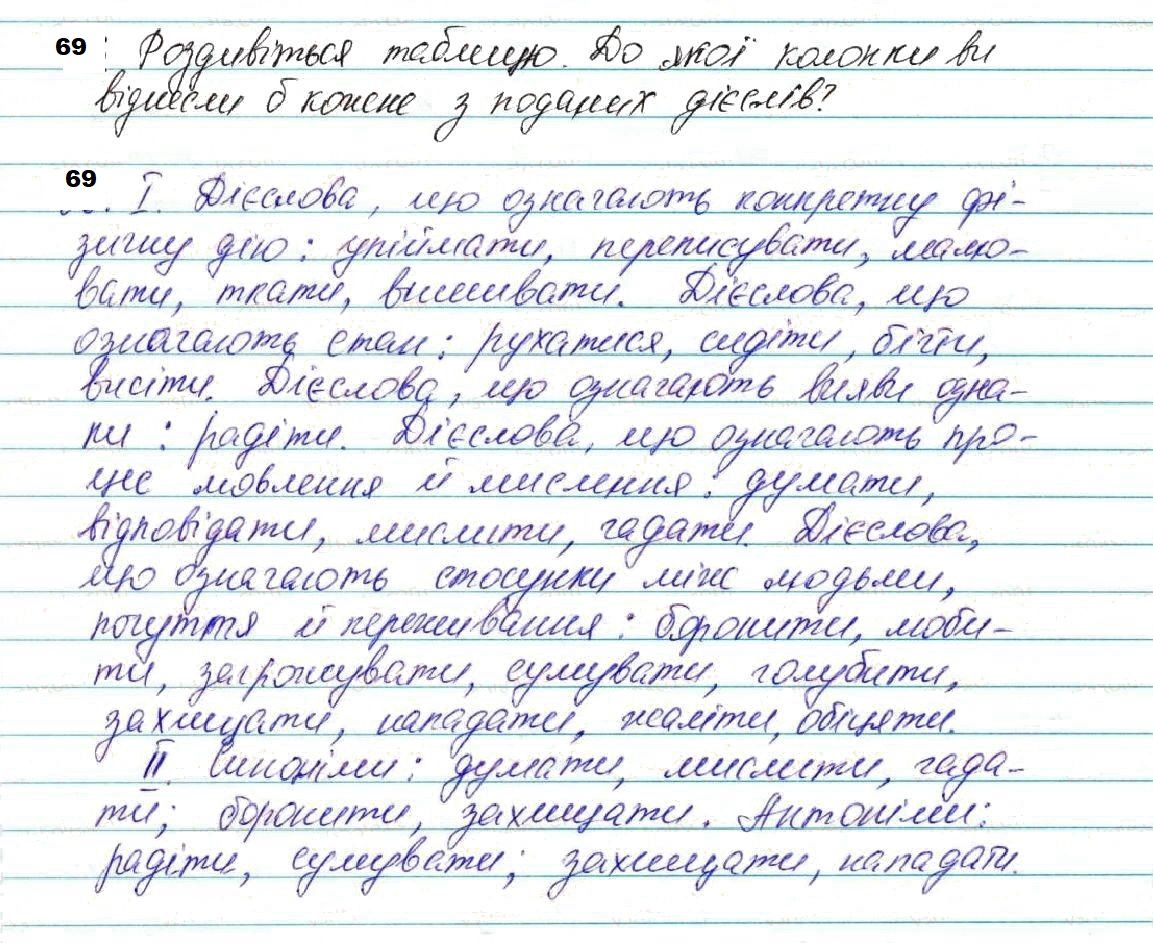 69 Роздивіться таблицю. До якої колонки ви
віднесли б кожне з поданих дієслів?
69 І. Дієслова, що означають конкретну фі-
зичну дію: упіймати, переписувати, малю-
вати, ткати, вишивати. Дієслова, що
означають стан: рухатися, сидіти, бігти,
висіти. Дієслова, що означають вияви озна-
ки: радіти. Дієслова, що означають про-
цес мовлення й мислення: думати,
відповідати, мислити, гадати. Дієслова,
що означають стосунки між людьми,
почуття й переживання: боронити, люби-
ти, загрожувати, сумувати, голубити,
захищати, нападати, жаліти, обіцяти.
ІІ. Синоніми: думати, мислити, гада-
ти; боронити, захищати. Антоніми:
радіти, сумувати; захищати, нападати.